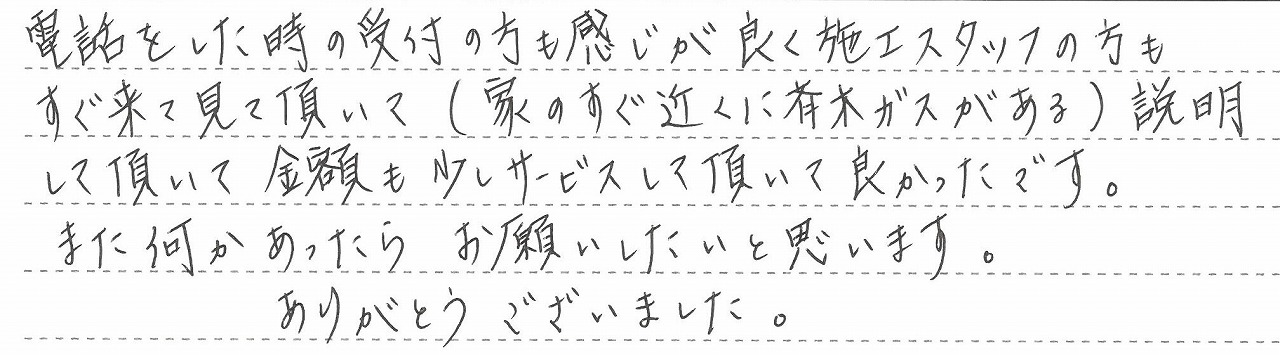 電話をした時の受付の方も感じが良く施工スタッフの方も
すぐ来て見て頂いて(家のすぐ近くに斉木ガスがある)説明
して頂いて 金額も少しサービスして頂いて良かったです。
また何かあったら お願いしたいと思います。
ありがとうございました。